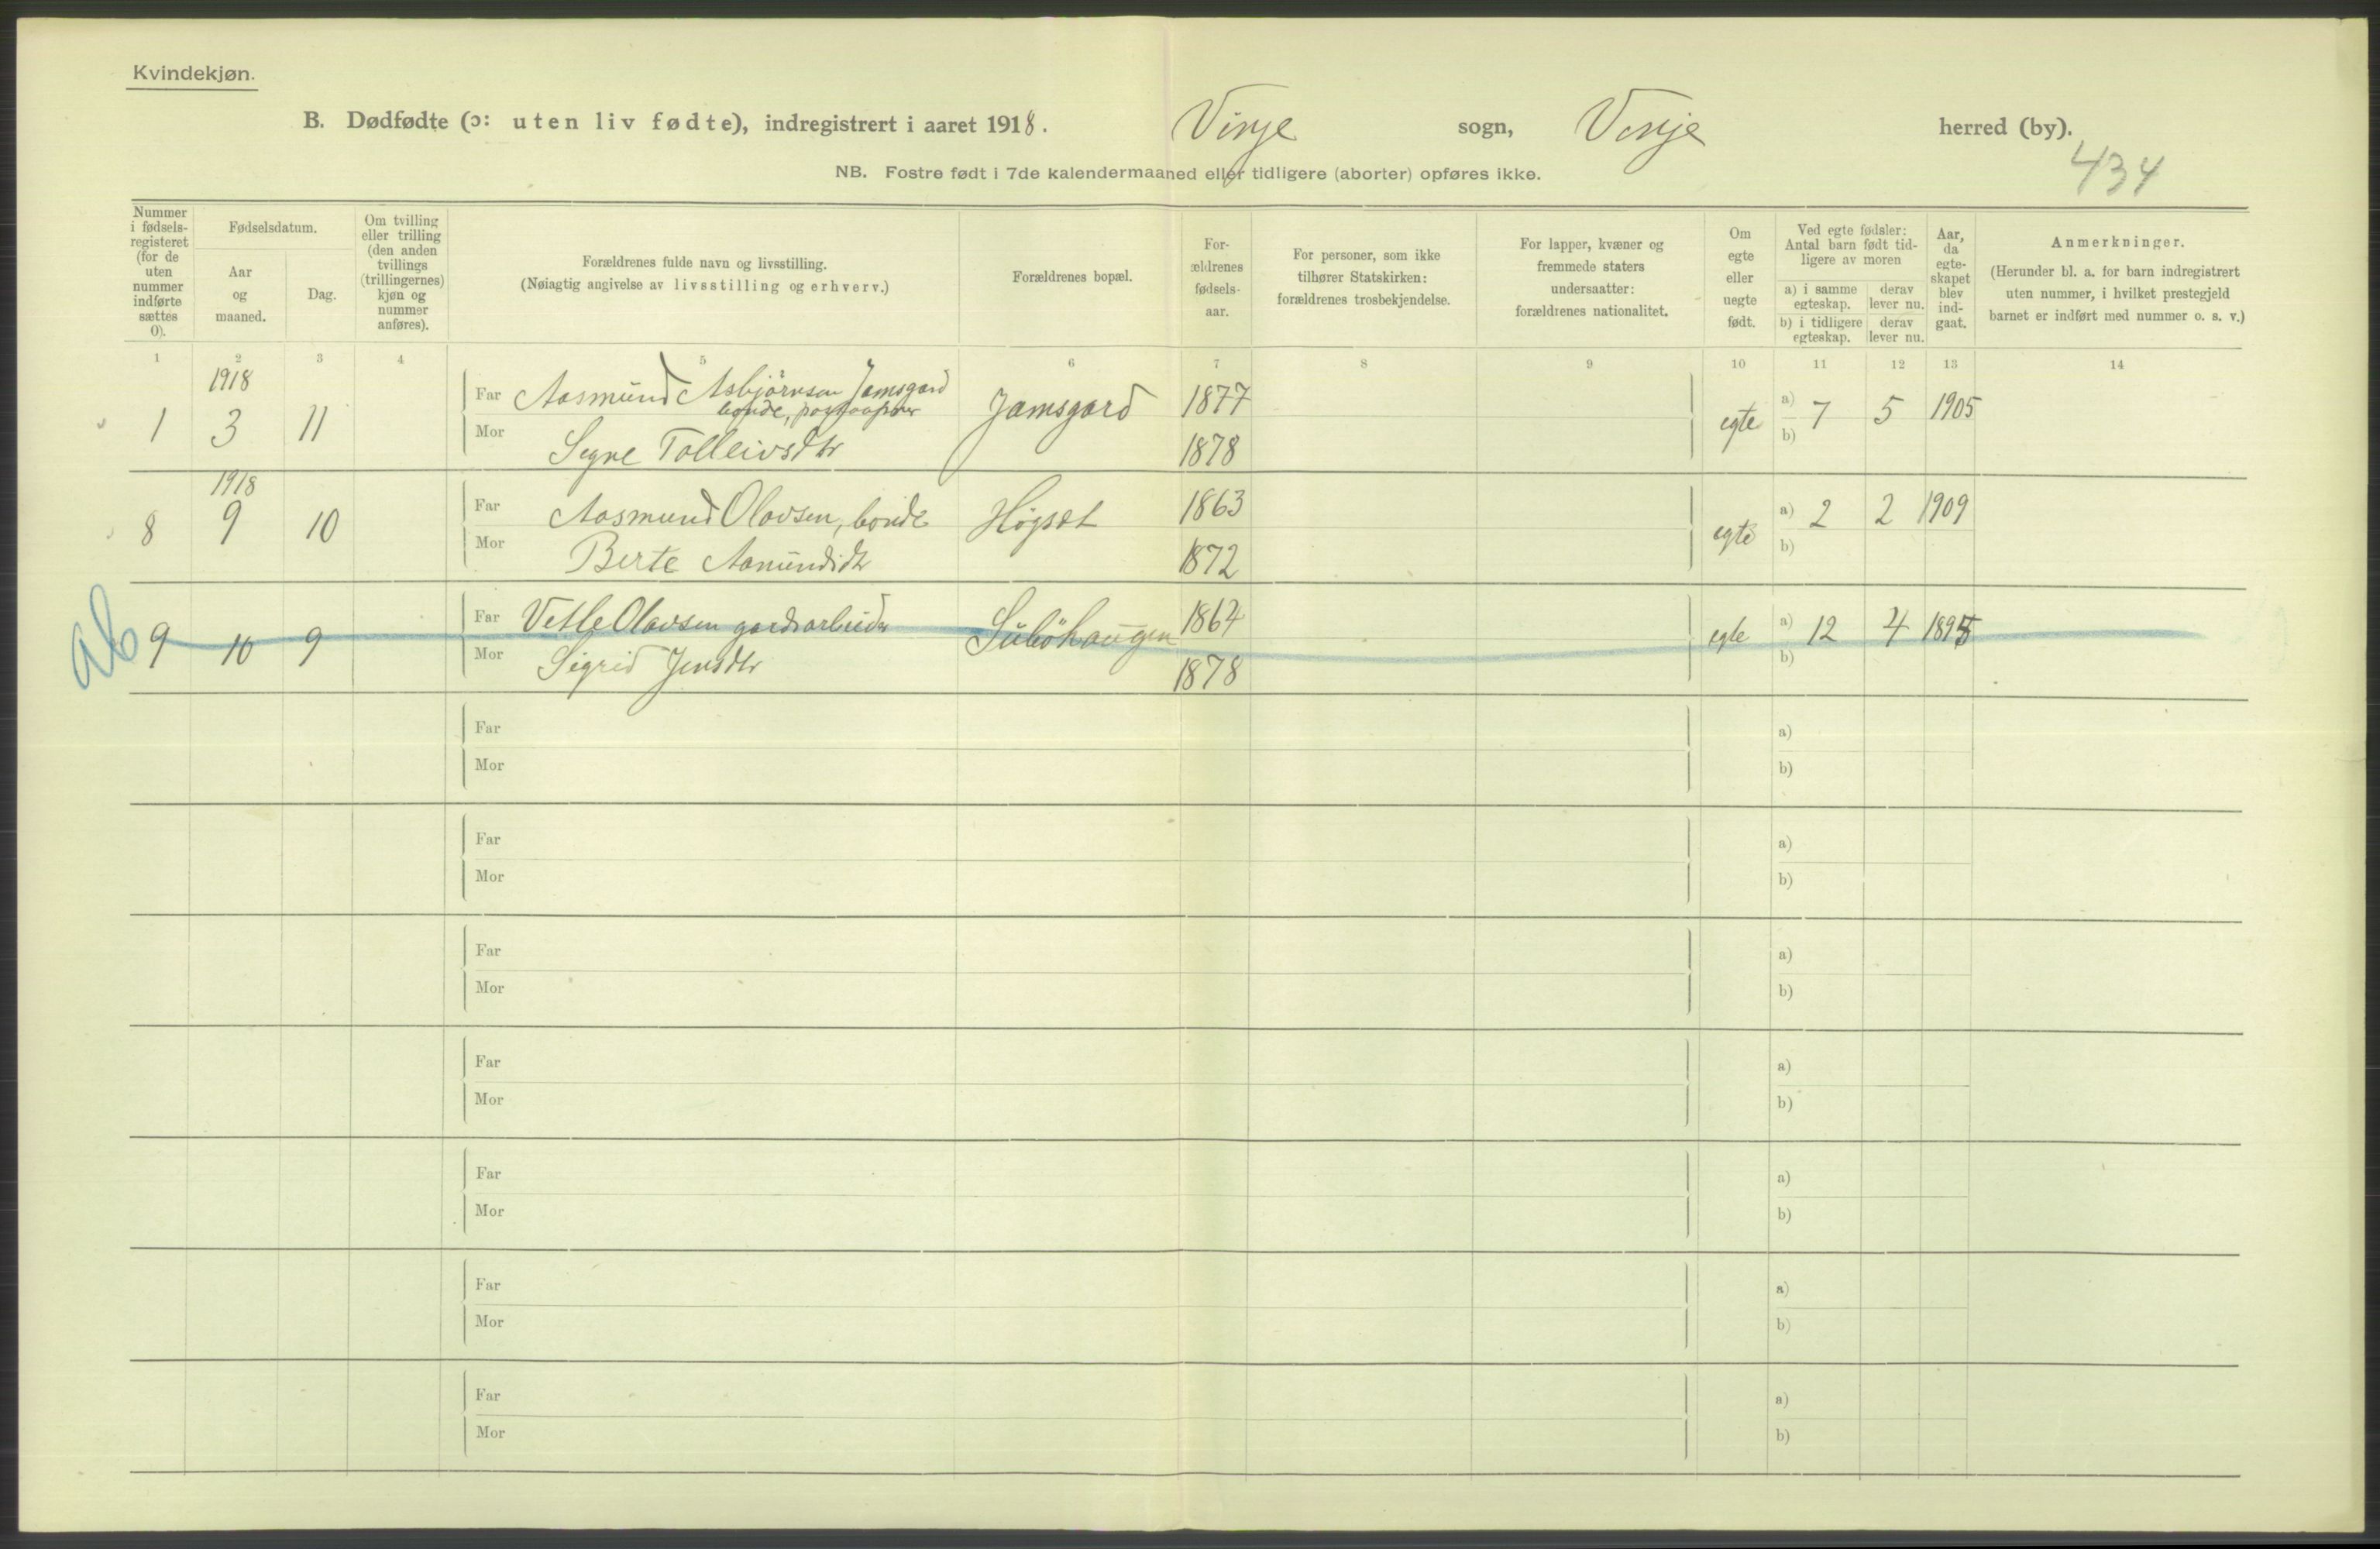 Kvindekjøn.
B. Dødfødte (ɔ: uten liv fødte), indregistrert i aaret 1918. Vinje sogn, Vinje herred (by).
NB. Fostre født i 7de kalendermaaned eller tidligere (aborter) opføres ikke.
434
Nummer i fødselsregisteret (for de uten nummer indførte sættes 0).
Fødselsdatum.
Aar og maaned.
Dag.
Om tvilling eller trilling (den anden tvillings (trillingernes) kjøn og nummer anføres).
Forældrenes fulde navn og livsstilling.
(Nøiagtig angivelse av livsstilling og erhverv.)
Forældrenes bopæl.
Forældrenes fødselsaar.
For personer, som ikke tilhører Statskirken: forældrenes trosbekjendelse.
For lapper, kvæner og fremmede staters undersaatter: forældrenes nationalitet.
Om egte eller uegte født.
Ved egte fødsler: Antal barn født tidligere av moren
a) i samme egteskap. derav lever nu.
b) i tidligere egteskap. derav lever nu.
Aar, da egteskapet blev indgaat.
Anmerkninger.
(Herunder bl. a. for barn indregistrert uten nummer, i hvilket prestegjeld barnet er indført med nummer o. s. v.)
1 2 3 4 5 6 7 8 9 10 11 12 13 14
1918
1 3 11 Far Aasmund Asbjörnsen Jamsgard Jamsgard 1877 egte a) 7 5 1905
bonde,
Mor Signe Tolleivsdtr 1878 b)
1918
8 9 10 Far Aasmund Olavsen, bonde Högset 1863 egte a) 2 2 1909
Mor Berte Aamundsdtr 1872 b)
ab 9 10 9 Far Vetle Olavsen gardsarbeider Suböhaugen 1864 egte a) 12 4 1895
Mor Sigrid Jensdtr 1878 b)
Far a)
Mor b)
Far a)
Mor b)
Far a)
Mor b)
Far a)
Mor b)
Far a)
Mor b)
Far a)
Mor b)
Far a)
Mor b)